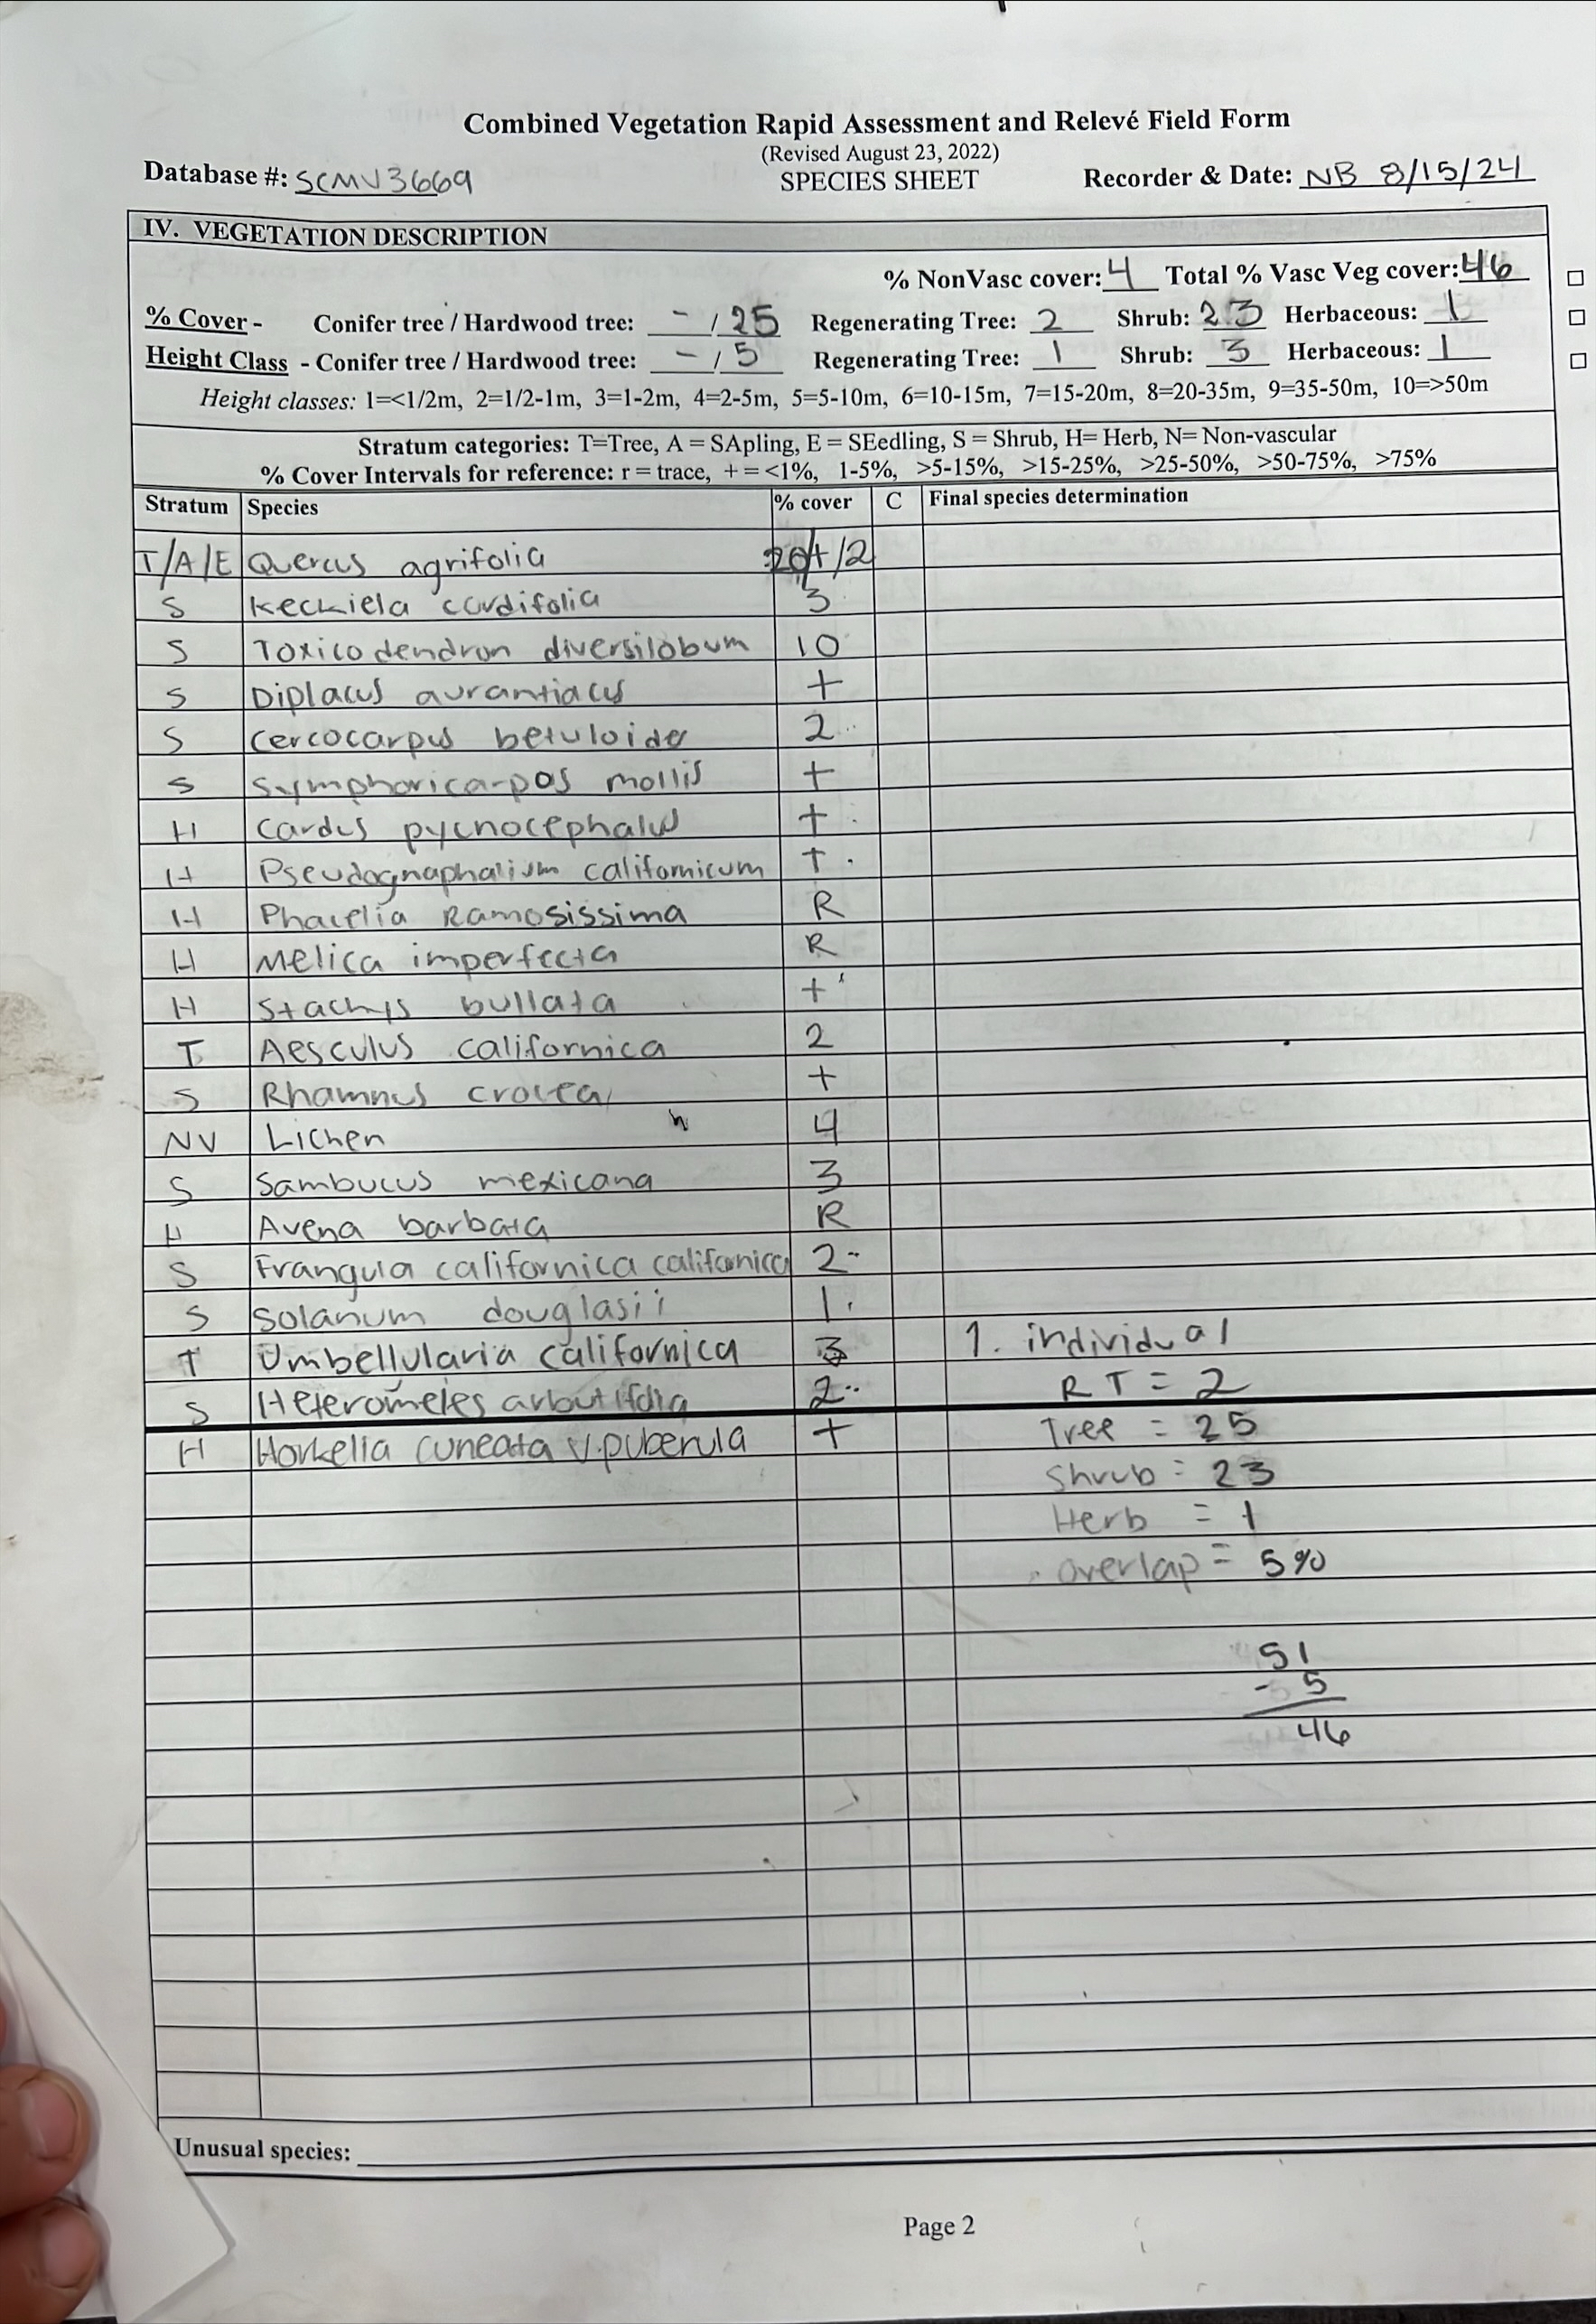 Combined Vegetation Rapid Assessment and Relevé Field Form
(Revised August 23, 2022)
Database #: SCMV3669 SPECIES SHEET Recorder & Date: NB 8/15/24
IV. VEGETATION DESCRIPTION
% NonVasc cover: 4 Total % Vasc Veg cover: 46
% Cover - Conifer tree / Hardwood tree: - / 25 Regenerating Tree: 2 Shrub: 23 Herbaceous: 1
Height Class - Conifer tree / Hardwood tree: - / 5 Regenerating Tree: 1 Shrub: 3 Herbaceous: 1
Height classes: 1=<1/2m, 2=1/2-1m, 3=1-2m, 4=2-5m, 5=5-10m, 6=10-15m, 7=15-20m, 8=20-35m, 9=35-50m, 10=>50m
Stratum categories: T=Tree, A = SApling, E = SEedling, S = Shrub, H= Herb, N= Non-vascular
% Cover Intervals for reference: r = trace, + = <1%, 1-5%, >5-15%, >15-25%, >25-50%, >50-75%, >75%
Stratum Species % cover C Final species determination
T/A/E Quercus agrifolia 20/+/2
S Keckiela cordifolia 3
S Toxicodendron diversilobum 10
S Diplacus aurantiacus +
S Cercocarpus betuloides 2
S Symphoricarpos mollis +
H Cardus pycnocephalus +
H Pseudognaphalium californicum +
H Phacelia Ramosissima R
H Melica imperfecta R
H Stachys bullata +
T Aesculus californica 2
S Rhamnus crocea +
NV Lichen 4
S Sambucus mexicana 3
H Avena barbata R
S Frangula californica californica 2
S Solanum douglasii 1
T Umbellularia californica 3 1. individual
S Heteromeles arbutifolia 2 RT = 2
H Horkelia cuneata v. puberula + Tree = 25
Shrub = 23
Herb = 1
overlap = 5%
51
- 5
46
Unusual species:
Page 2